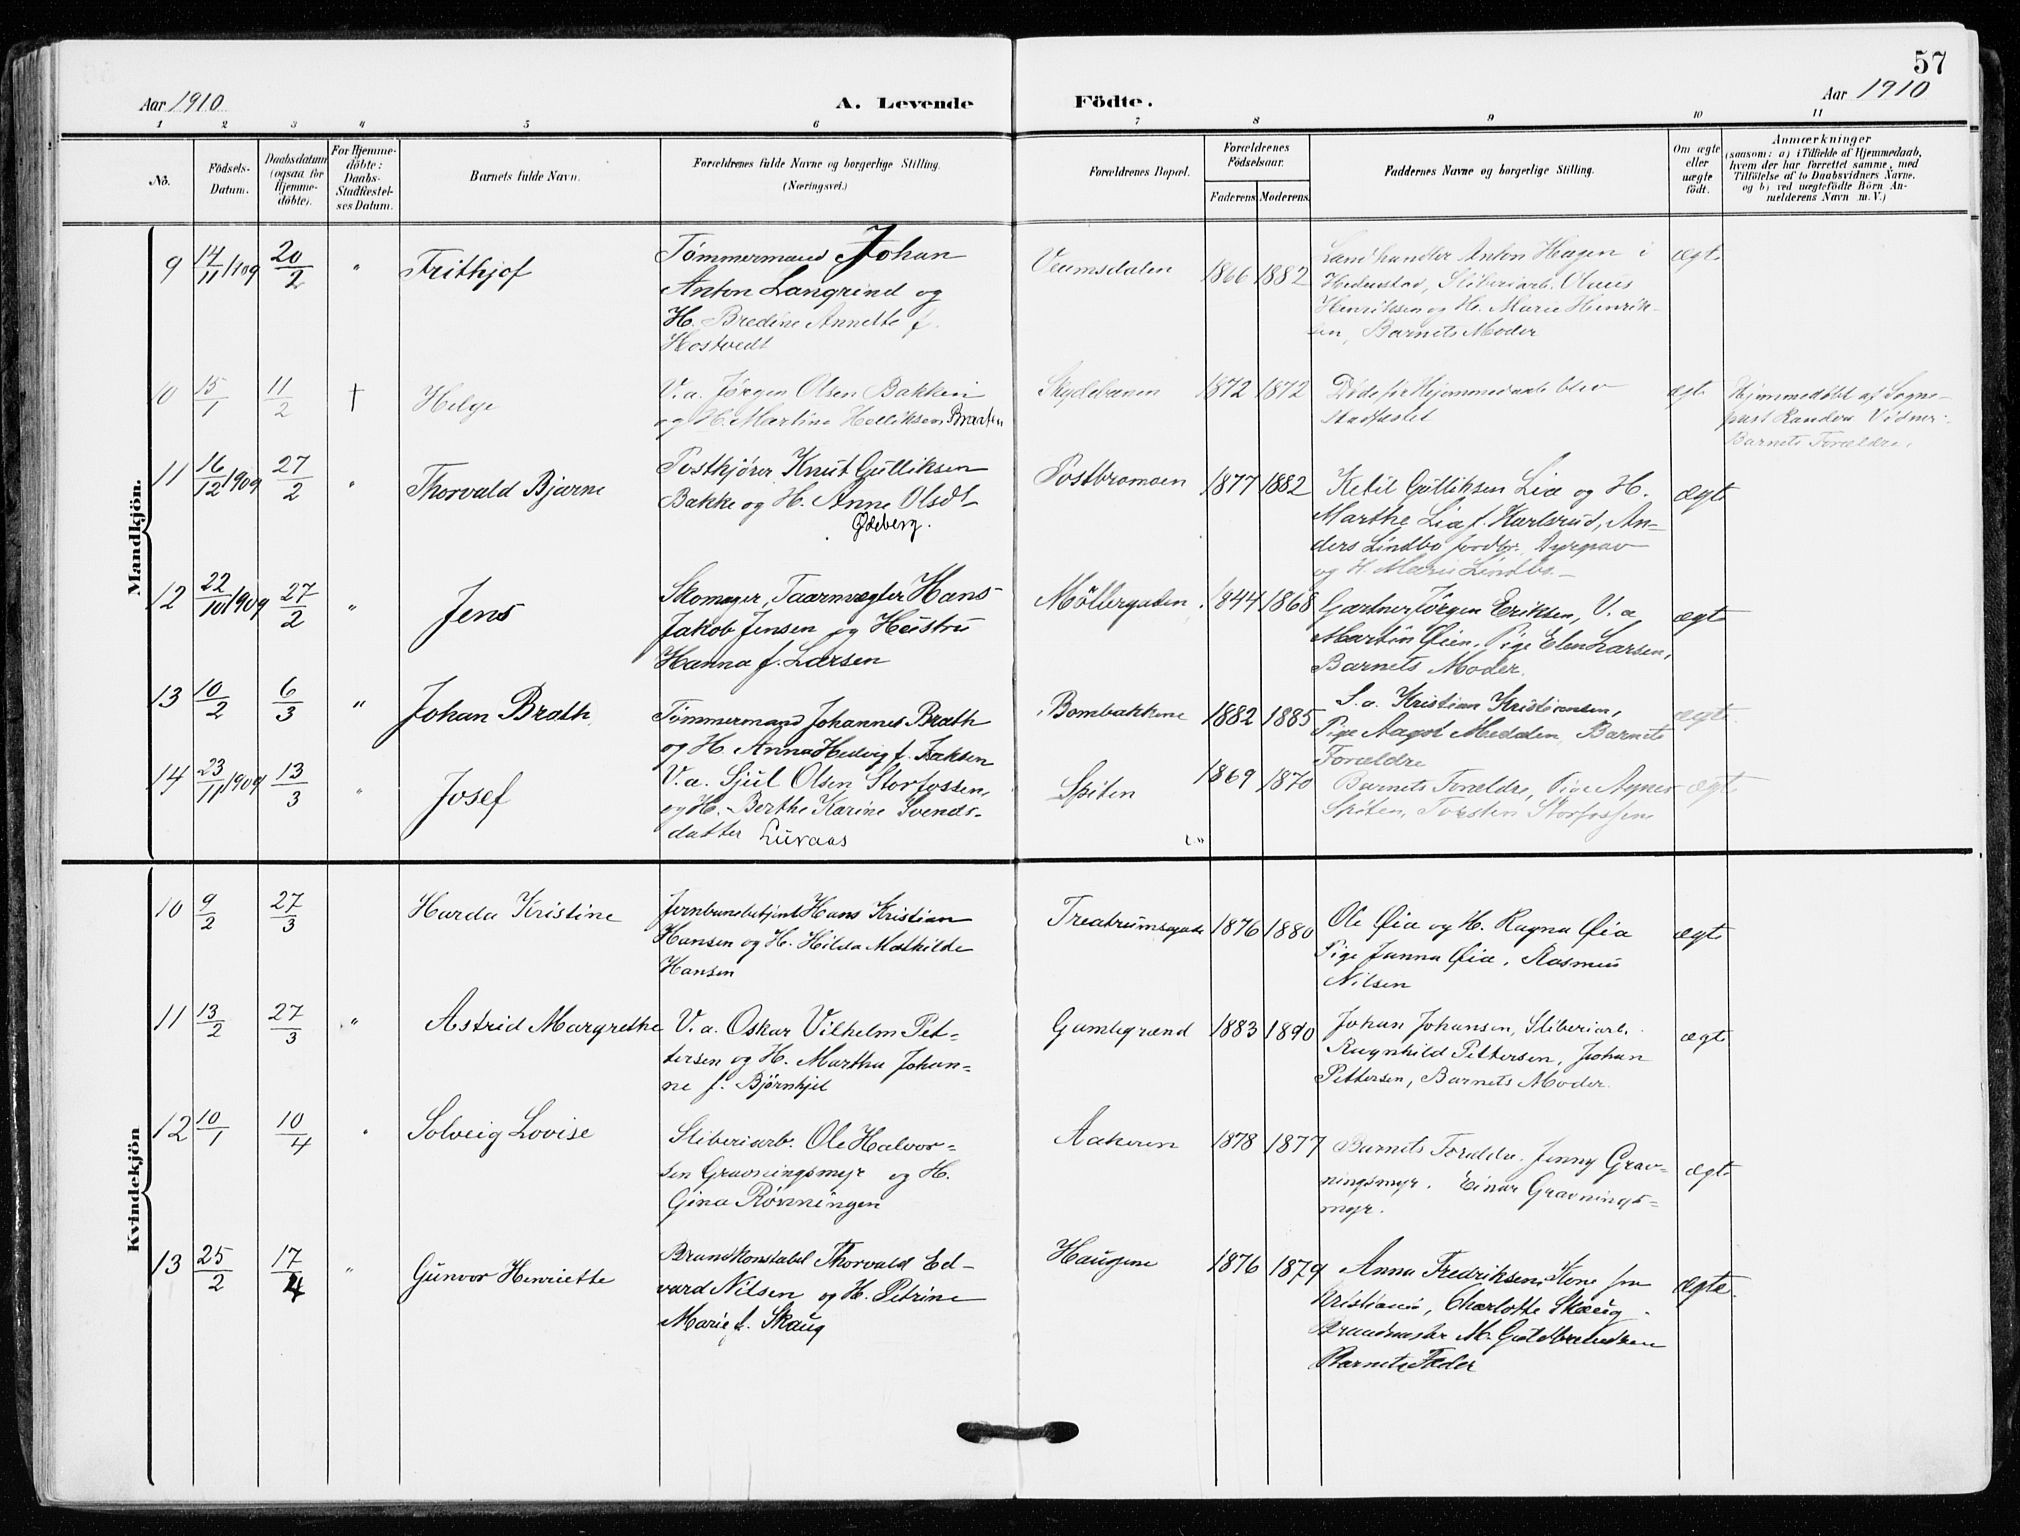 57
Aar 1910
A. Levende Födte.
Aar 1910
1 2 3 4 5 6 7 8 9 10 11
No.
Födsels-
Datum.
Daabsdatum
(ogsaa for
Hjemme-
döbte).
For Hjemme-
döbte:
Daabs-
Stadfæstel-
ses Datum.
Barnets fulde Navn.
Forældrenes fulde Navne og borgerlige Stilling.
(Næringsvei.)
Forældrenes Bopæl.
Forældrenes
Födselsaar.
Faderens Moderens.
Faddernes Navne og borgerlige Stilling.
Om ægte
eller
uægte
födt.
Anmærkninger
(saasom: a) i Tilfælde af Hjemmedaab,
hvem der har forrettet samme, med
Tilföielse af to Daabsvidners Navne.
og b) ved uægtefödte Börn An-
melderens Navn m. V.)
Mandkjön.
9 14/11 1909 20/2 " Frithjof
Tømmermand Johan
Anton Langrind og
H. Bredine Annette f.
Hostvedt
Veumsdalen 1866 1882
Landhandler Anton Hagen i
Hedenstad, Sliberiarb. Olaus
Henriksen og H. Marie Henrik-
sen, Barnets Moder
ægte
10 15/1 11/2 † Helge
V.a. Jørgen Olsen Bakken
og H. Martine Helliksen Braaten
Skydebanen 1872 1872
Døde før Hjemmedaab blev
stadfæstet
ægte
Hjemmedøbt af Sogne-
prest Vidner:
Barnets Forældre.
11 16/12 1909 27/2 " Thorvald Bjarne
Postkjører Knut Gulliksen
Bakke og H. Anne Olsdt
Ødeberg.
Postbromoen 1877 1882
Ketil Gulliksen Lia og H.
Marthe Lia f. Karlsrud, An-
ders Lindbo
og H. Marie Lindbo.
ægte
12 22/10 1909 27/2 " Jens
Skomager, Taarnvægter Hans
Jakob Jensen og Hustru
Hanna f. Larsen
Möllergaden 1844 1868
Gartner Jørgen Eriksen, V.a
Martin Øien, Pige Elen Larsen,
Barnets Moder.
ægte
13 10/2 6/3 " Johan Brath
Tømmermand Johannes Brath
og H. Anna Hedvig f. Isaksen
Bombakkene 1882 1885
S.a. Kristian Kristiansen,
Pige Aagot Medden, Barnets
Forældre
ægte
14 23/11 1909 13/3 " Josef
V.a. Sjul Olsen Storfossen,
og H. Berthe Karine Svends-
datter Luraas
Spiten 1869 1870
Barnets Forældre, Pige Agnes
Spiten, Torsten Storfossen
ægte
Kvindekjön
10 9/2 27/3 Harda Kristine
Jernbanebetjent Hans Kristian
Hansen og H. Hilda Mathilde
Hansen
Treatrumsgade 1876 1880
Ole Øia og H. Ragna Øia
Pige Janna Øia, Rasmus
Nilsen
ægte
11 13/2 27/3 " Astrid Margrethe
V.a. Oskar Vilhelm Pet-
tersen og H. Martha Johan-
ne f. Bjørnhjel
Gamlegrænd 1883 1890
Johan Johansen, Sliberiarb.
Ragnhild Pettersen, Johan
Pettersen, Barnets Moder.
ægte
12 10/1 10/4 " Solveig Lovise
Sliberiarb. Ole Halvor-
sen Gravningsmyr og H.
Gina Rønningen
Aakeren 1878 1877
Barnets Forældre, Jenny Grav-
ningsmyr. Einar Gravnings-
myr.
ægte
13 25/2 17/4 " Gunvor Henriette
Brandkonstabel Thorvald Ed-
vard Nilsen og H. Petrine
Marie f. Skaug
Haugene 1876 1879
Anna Fredriksen, Kone fra
Kristiania, Charlotte Skaug
Brandmester M. Guldbrandsen
Barnets Fader
ægte.